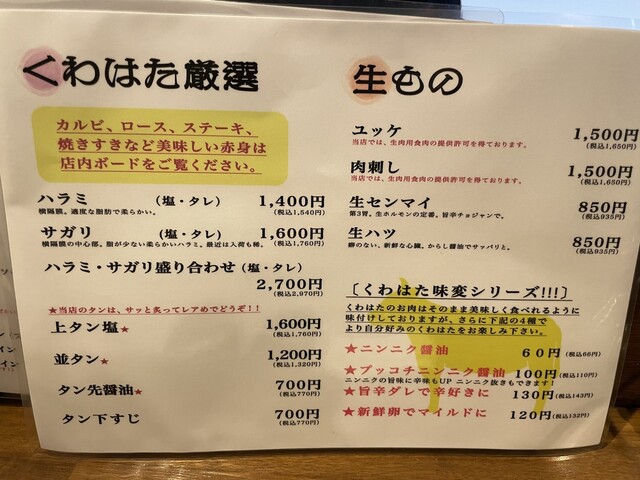 くわはた厳選
カルビ、ロース、ステーキ、
焼きすきなど美味しい赤身は
店内ボードをご覧ください。
ハラミ (塩・タレ) 1,400円
横隔膜。適度な脂肪で柔らかい。 (税込1,540円)
サガリ (塩・タレ) 1,600円
横隔膜の中心部。脂が少ない柔らかいハラミ。最近は入荷も稀。 (税込1,760円)
ハラミ・サガリ盛り合わせ (塩・タレ)
2,700円
(税込2,970円)
★当店のタンは、サッと炙ってレアめでどうぞ!!
上タン塩★ 1,600円
(税込1,760円)
並タン★ 1,200円
(税込1,320円)
タン先醤油★ 700円
(税込770円)
タン下すじ 700円
(税込770円)
生もの
ユッケ 1,500円
当店では、生肉用食肉の提供許可を得ております。 (税込1,650円)
肉刺し 1,500円
当店では、生肉用食肉の提供許可を得ております。 (税込1,650円)
生センマイ 850円
第3胃。生ホルモンの定番。旨辛チョジャンで。 (税込935円)
生ハツ 850円
癖のない、新鮮な心臓。からし醤油でサッパリと。 (税込935円)
〔くわはた味変シリーズ!!!〕
くわはたのお肉はそのまま美味しく食べれるように
味付けしておりますが、さらに下記の4種で
より自分好みのくわはたをお楽しみ下さい。
★ニンニク醤油 60円(税込66円)
★プッコチニンニク醤油 100円(税込110円)
ニンニクの旨味に辛味もUP ニンニク抜きもできます!
★旨辛ダレで辛好きに 130円(税込143円)
★新鮮卵でマイルドに 120円(税込132円)